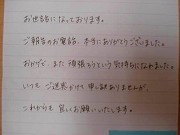 お世話になっております。
ご報告のお電話、本当にありがとうございました。
おかげで、また頑張ろうという気持ちになれました。
いつもご迷惑かけて申し訳ありませんが、
これからも宜しくお願いいたします。